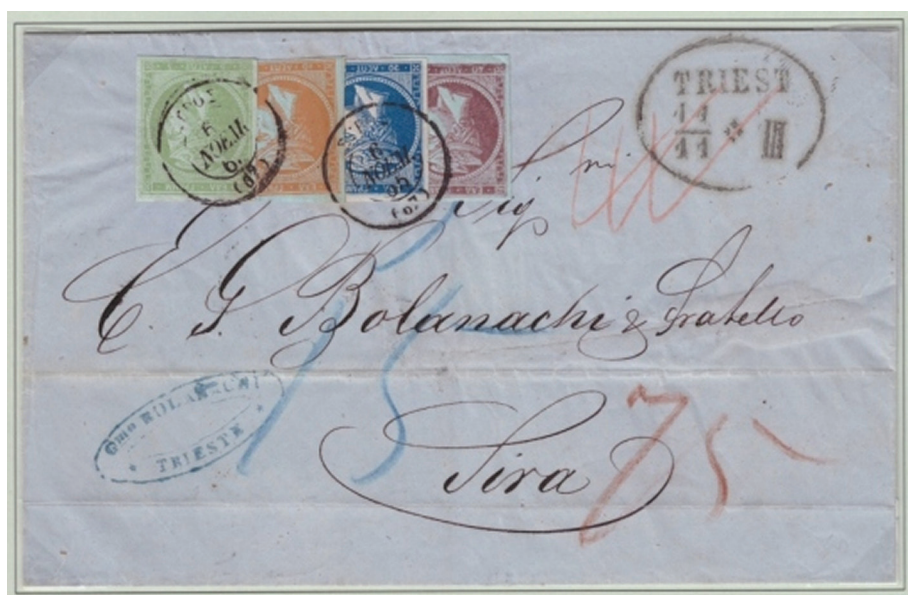 TRIEST
11
11 III
6
ΝΟΕΜ.
(67)
6
ΝΟΕΜ.
68
(67)
Sig.ri
C. G. Bolanachi & Fratello
15
Gmo BOLANACHI
TRIESTE
Sira
75